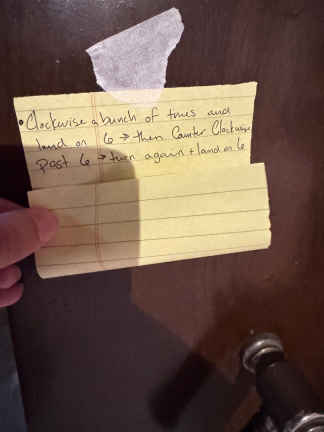 • Clockwise a bunch of times and
land on 6 → then Counter Clockwise
past 6 → turn again + land on 6